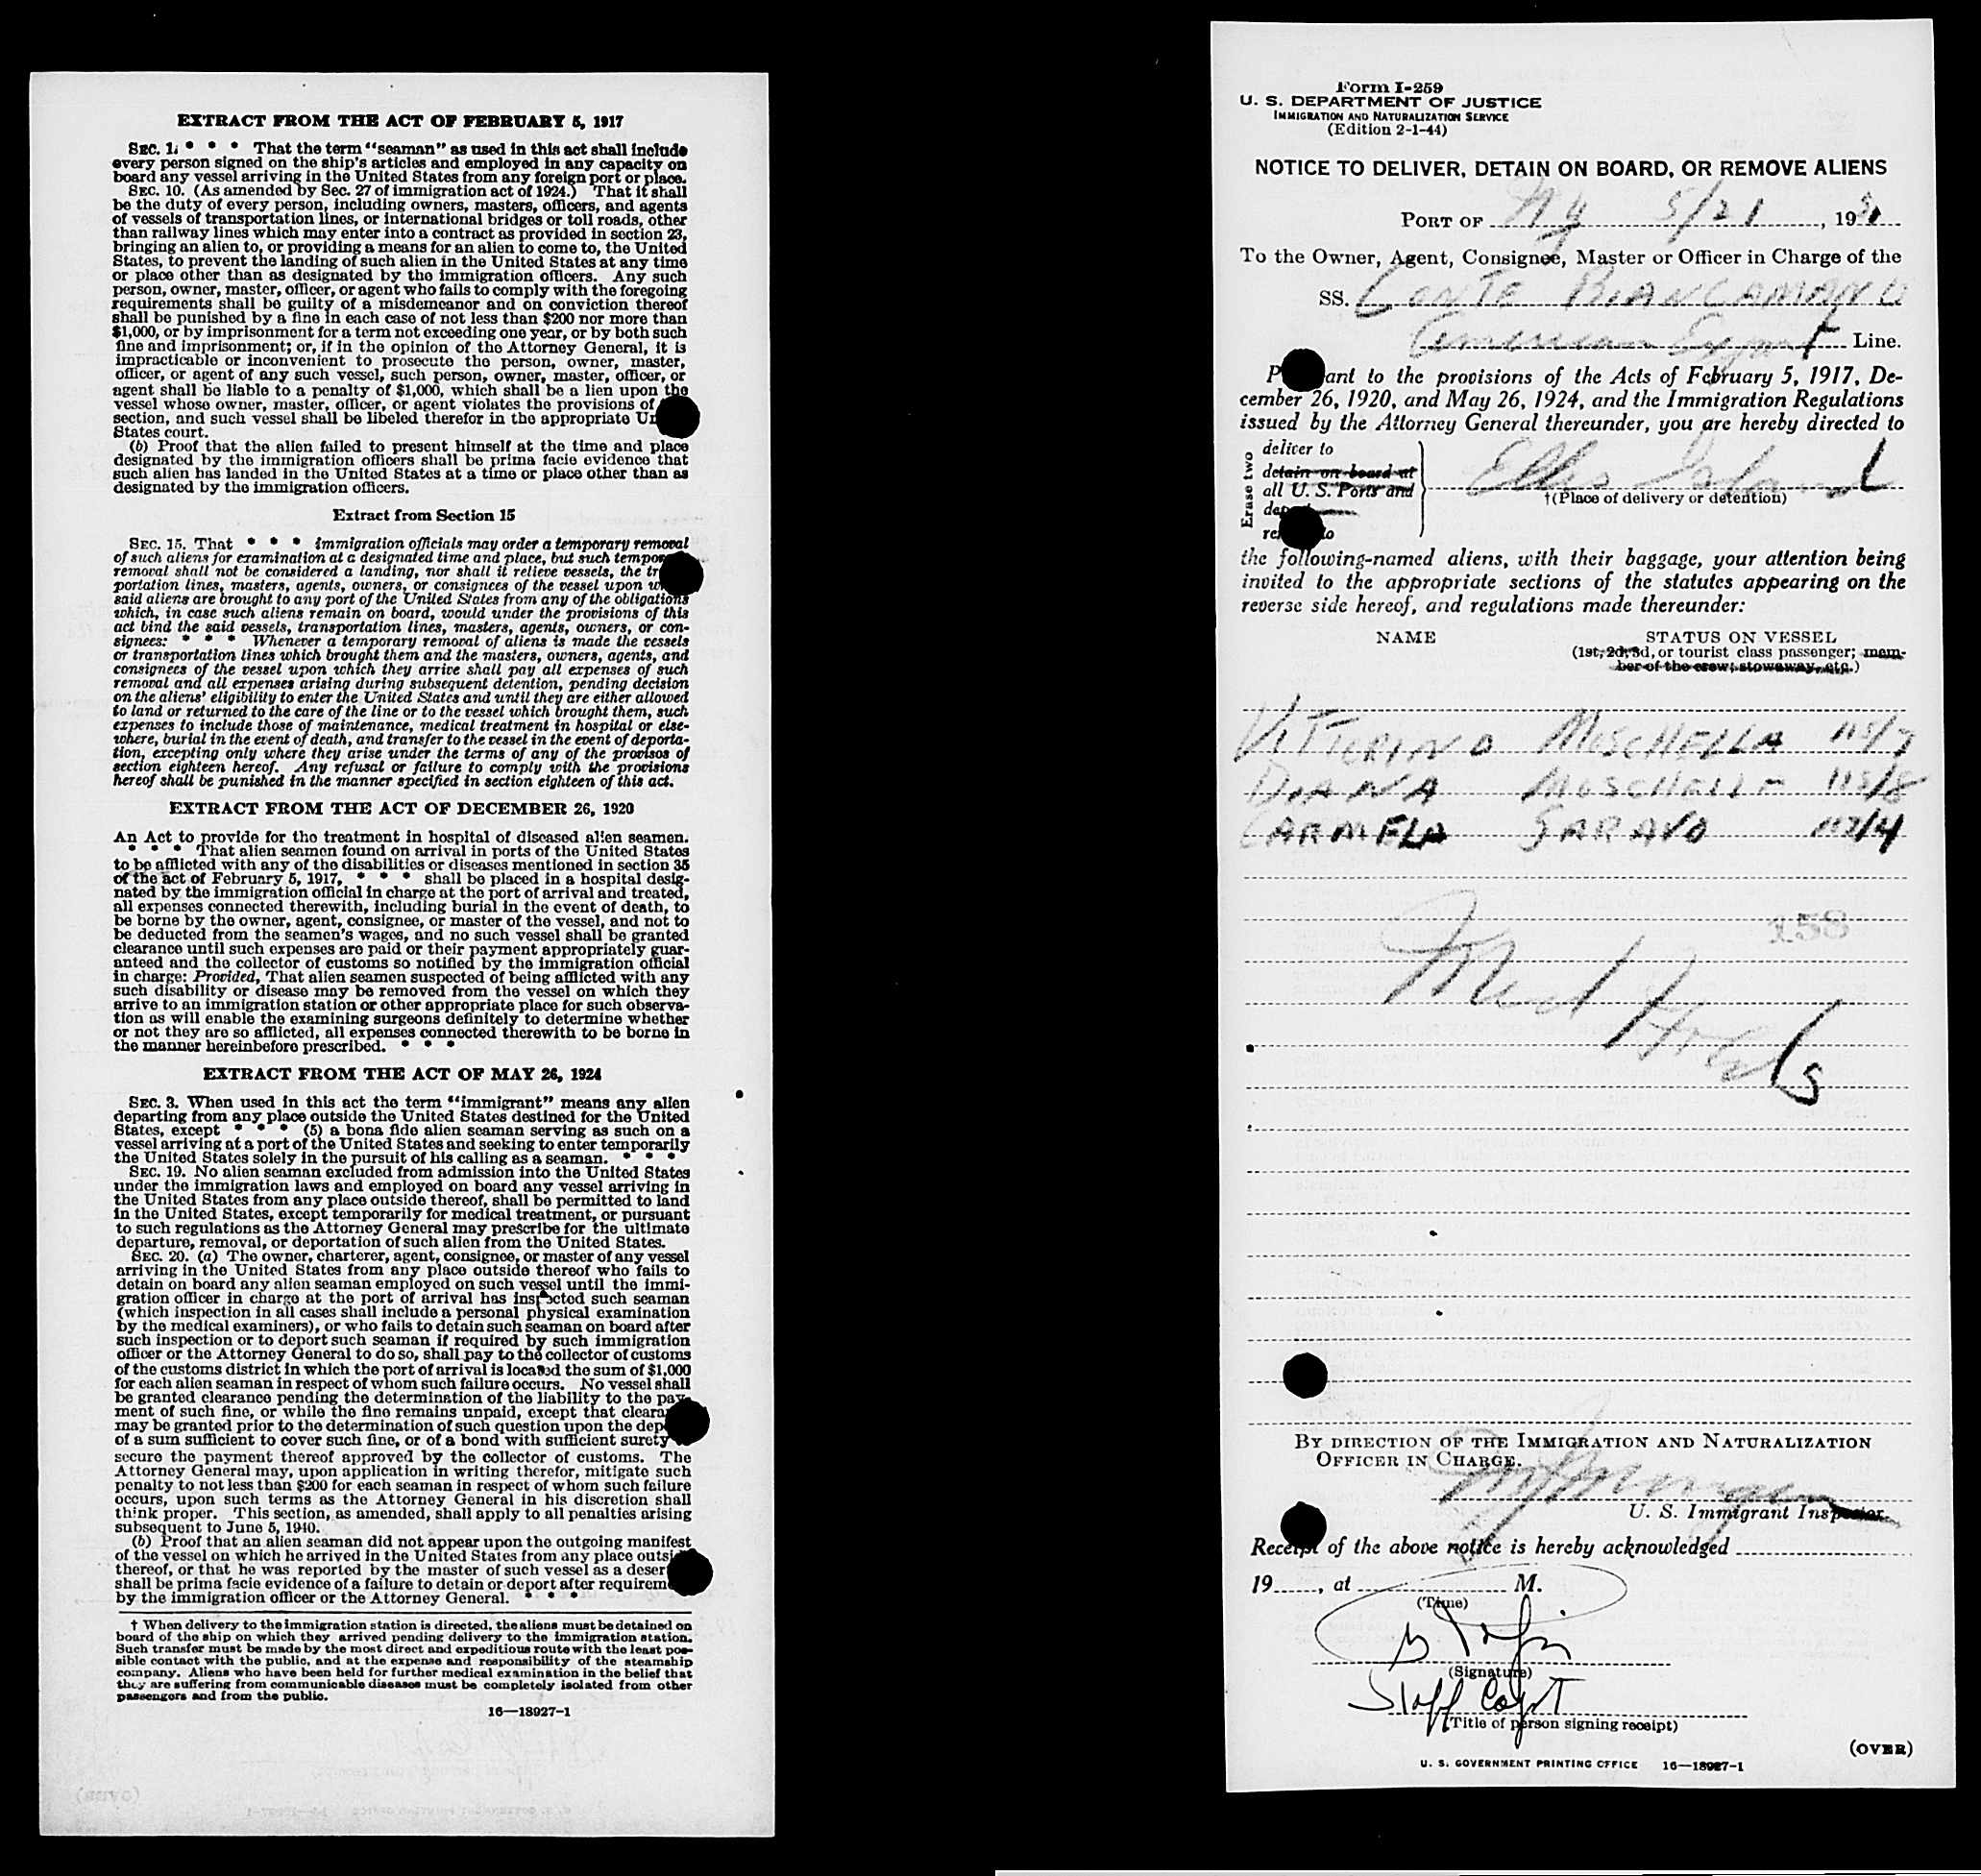 EXTRACT FROM THE ACT OF FEBRUARY 5, 1917
SEC. 1. * * * That the term "seaman" as used in this act shall include
every person signed on the ship's articles and employed in any capacity on
board any vessel arriving in the United States from any foreign port or place.
SEC. 10. (As amended by Sec. 27 of immigration act of 1924.) That it shall
be the duty of every person, including owners, masters, officers, and agents
of vessels of transportation lines, or international bridges or toll roads, other
than railway lines which may enter into a contract as provided in section 23,
bringing an alien to, or providing a means for an alien to come to, the United
States, to prevent the landing of such alien in the United States at any time
or place other than as designated by the immigration officers. Any such
person, owner, master, officer, or agent who fails to comply with the foregoing
requirements shall be guilty of a misdemeanor and on conviction thereof
shall be punished by a fine in each case of not less than $200 nor more than
$1,000, or by imprisonment for a term not exceeding one year, or by both such
fine and imprisonment; or, if in the opinion of the Attorney General, it is
impracticable or inconvenient to prosecute the person, owner, master,
officer, or agent of any such vessel, such person, owner, master, officer, or
agent shall be liable to a penalty of $1,000, which shall be a lien upon the
vessel whose owner, master, officer, or agent violates the provisions of
section, and such vessel shall be libeled therefor in the appropriate
States court.
(b) Proof that the alien failed to present himself at the time and place
designated by the immigration officers shall be prima facie evidence that
such alien has landed in the United States at a time or place other than as
designated by the immigration officers.
Extract from Section 15
SEC. 15. That * * * immigration officials may order a temporary removal
of such aliens for examination at a designated time and place, but such
removal shall not be considered a landing, nor shall it relieve vessels, the
portation lines, masters, agents, owners, or consignees of the vessel upon
said aliens are brought to any port of the United States from any of the obligations
which, in case such aliens remain on board, would under the provisions of this
act bind the said vessels, transportation lines, masters, agents, owners, or con-
signees: * * * Whenever a temporary removal of aliens is made the vessels
or transportation lines which brought them and the masters, owners, agents, and
consignees of the vessel upon which they arrive shall pay all expenses of such
removal and all expenses arising during subsequent detention, pending decision
on the aliens' eligibility to enter the United States and until they are either allowed
to land or returned to the care of the line or to the vessel which brought them, such
expenses to include those of maintenance, medical treatment in hospital or else-
where, burial in the event of death, and transfer to the vessel in the event of deporta-
tion, excepting only where they arise under the terms of any of the provisos of
section eighteen hereof. Any refusal or failure to comply with the provisions
hereof shall be punished in the manner specified in section eighteen of this act.
EXTRACT FROM THE ACT OF DECEMBER 26, 1920
An Act to provide for the treatment in hospital of diseased alien seamen.
* * * That alien seamen found on arrival in ports of the United States
to be afflicted with any of the disabilities or diseases mentioned in section 35
of the act of February 5, 1917, * * * shall be placed in a hospital desig-
nated by the immigration official in charge at the port of arrival and treated,
all expenses connected therewith, including burial in the event of death, to
be borne by the owner, agent, consignee, or master of the vessel, and not to
be deducted from the seamen's wages, and no such vessel shall be granted
clearance until such expenses are paid or their payment appropriately guar-
anteed and the collector of customs so notified by the immigration official
in charge: Provided, That alien seamen suspected of being afflicted with any
such disability or disease may be removed from the vessel on which they
arrive to an immigration station or other appropriate place for such observa-
tion as will enable the examining surgeons definitely to determine whether
or not they are so afflicted, all expenses connected therewith to be borne in
the manner hereinbefore prescribed. * * *
EXTRACT FROM THE ACT OF MAY 26, 1924
SEC. 3. When used in this act the term "immigrant" means any alien
departing from any place outside the United States destined for the United
States, except * * * (5) a bona fide alien seaman serving as such on a
vessel arriving at a port of the United States and seeking to enter temporarily
the United States solely in the pursuit of his calling as a seaman. * * *
SEC. 19. No alien seaman excluded from admission into the United States
under the immigration laws and employed on board any vessel arriving in
the United States from any place outside thereof, shall be permitted to land
in the United States, except temporarily for medical treatment, or pursuant
to such regulations as the Attorney General may prescribe for the ultimate
departure, removal, or deportation of such alien from the United States.
SEC. 20. (a) The owner, charterer, agent, consignee, or master of any vessel
arriving in the United States from any place outside thereof who fails to
detain on board any alien seaman employed on such vessel until the immi-
gration officer in charge at the port of arrival has inspected such seaman
(which inspection in all cases shall include a personal physical examination
by the medical examiners), or who fails to detain such seaman on board after
such inspection or to deport such seaman if required by such immigration
officer or the Attorney General to do so, shall pay to the collector of customs
of the customs district in which the port of arrival is located the sum of $1,000
for each alien seaman in respect of whom such failure occurs. No vessel shall
be granted clearance pending the determination of the liability to the pay-
ment of such fine, or while the fine remains unpaid, except that
may be granted prior to the determination of such question upon the
of a sum sufficient to cover such fine, or of a bond with sufficient surety
secure the payment thereof approved by the collector of customs. The
Attorney General may, upon application in writing therefor, mitigate such
penalty to not less than $200 for each seaman in respect of whom such failure
occurs, upon such terms as the Attorney General in his discretion shall
think proper. This section, as amended, shall apply to all penalties arising
subsequent to June 5, 1940.
(b) Proof that an alien seaman did not appear upon the outgoing manifest
of the vessel on which he arrived in the United States from any place
thereof, or that he was reported by the master of such vessel as a
shall be prima facie evidence of a failure to detain or deport after
by the immigration officer or the Attorney General. * * *
† When delivery to the immigration station is directed, the aliens must be detained on
board of the ship on which they arrived pending delivery to the immigration station.
Such transfer must be made by the most direct and expeditious route with the least pos-
sible contact with the public, and at the expense and responsibility of the steamship
company. Aliens who have been held for further medical examination in the belief that
they are suffering from communicable diseases must be completely isolated from other
passengers and from the public.
16—18927-1
Form I-259
U. S. DEPARTMENT OF JUSTICE
IMMIGRATION AND NATURALIZATION SERVICE
(Edition 2-1-44)
NOTICE TO DELIVER, DETAIN ON BOARD, OR REMOVE ALIENS
PORT OF NY 5/21, 19
To the Owner, Agent, Consignee, Master or Officer in Charge of the
SS. CONTE BIANCAMANO
American Export Line.
to the provisions of the Acts of February 5, 1917, De-
cember 26, 1920, and May 26, 1924, and the Immigration Regulations
issued by the Attorney General thereunder, you are hereby directed to
Erase two
deliver to
detain on board at
all U. S. Ports and
Ellis Island
†(Place of delivery or detention)
the following-named aliens, with their baggage, your attention being
invited to the appropriate sections of the statutes appearing on the
reverse side hereof, and regulations made thereunder:
NAME STATUS ON VESSEL
(1st, 2d, 3d, or tourist class passenger; mem-
ber of the crew; stowaway, etc.)
VITTORINO MOSCHELLA 115/7
DIANA 115/8
CARMELA SARAVO 117/4
158
Med Holds
BY DIRECTION OF THE IMMIGRATION AND NATURALIZATION
OFFICER IN CHARGE.
U. S. Immigrant Inspector.
Receipt of the above notice is hereby acknowledged
19 , at M.
(Time)
(Signature)
Staff Capt
(Title of person signing receipt)
(OVER)
U. S. GOVERNMENT PRINTING OFFICE 16—18927-1